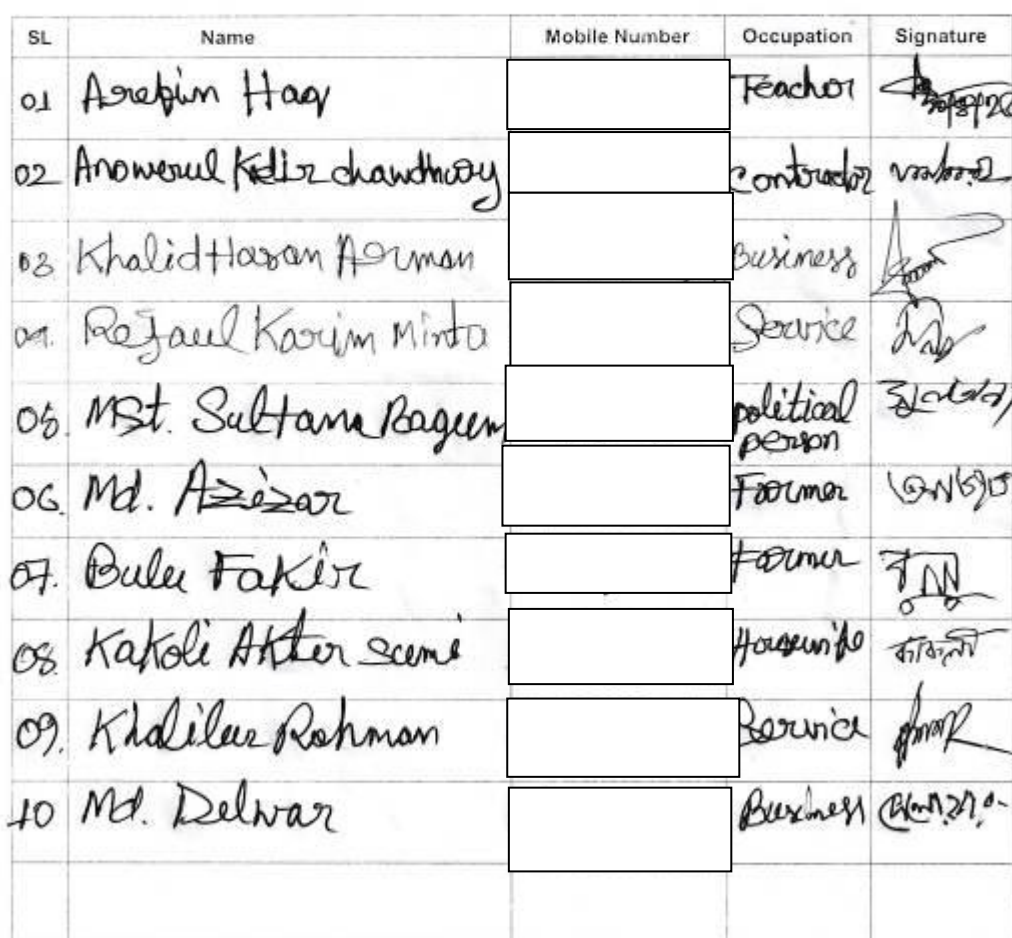 SL Name Mobile Number Occupation Signature
01 Arefin Haq Teacher
02 Anowerul Kdir chawdhury Contractor
03 Khalid Hasan Arman Business
04. Rejaul Karim Minta Service
05. MSt. Sultana Bagum political
person
06. Md. Azizar Farmer
07. Bulu Fakir Farmer
08. Kakoli Akter Sumi Housewife কাকলী
09. Khalilur Rahman Service
10 Md. Delwar Business